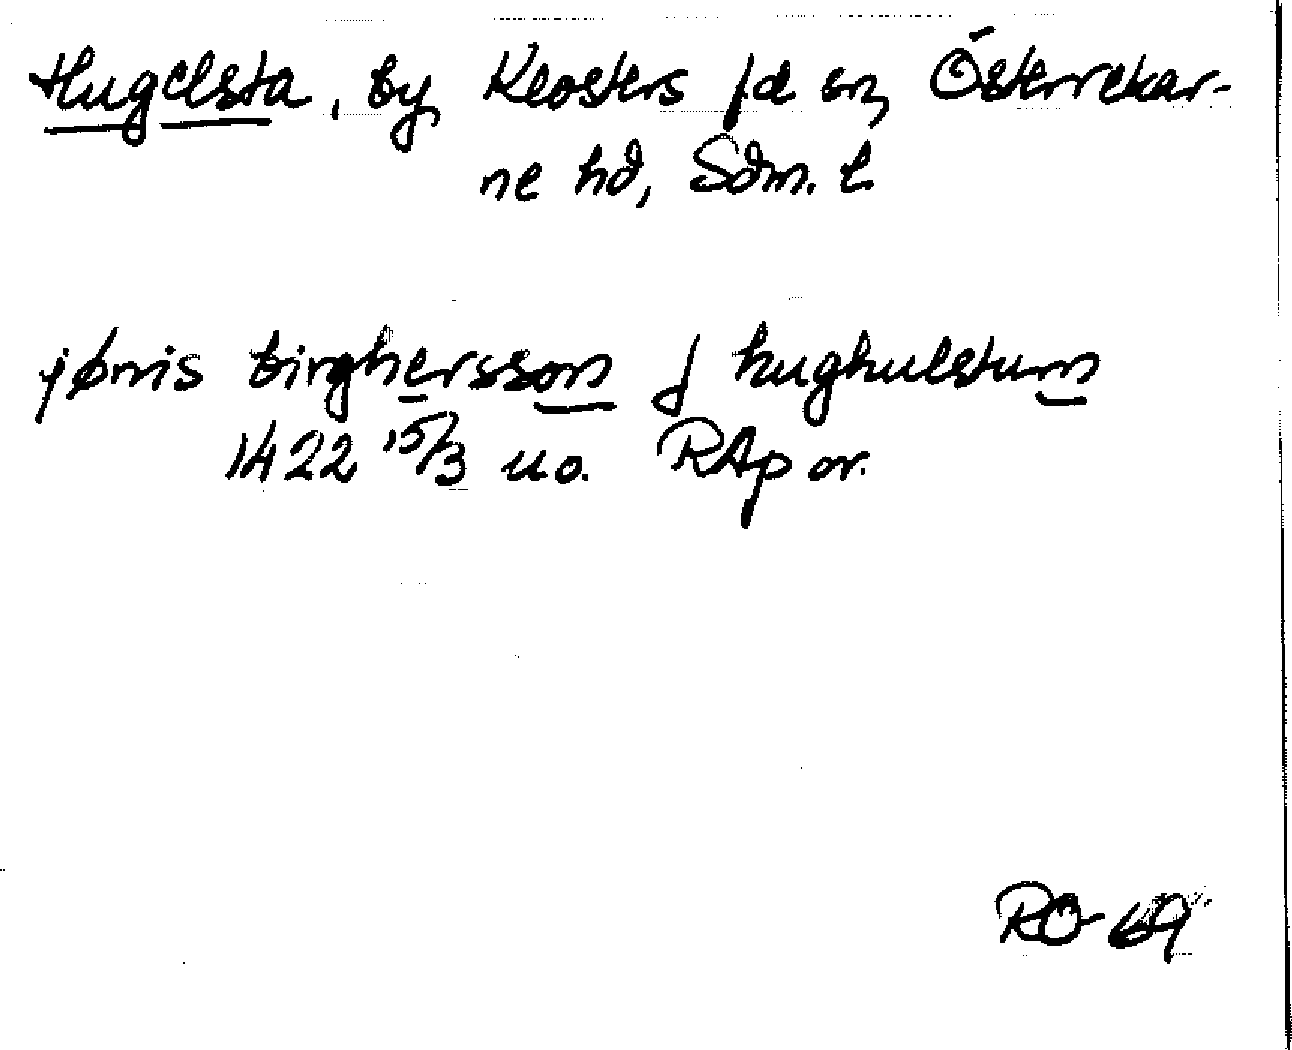 Hugelsta, by, Klosters fd sn, Österrekar-
ne hd, Sdm. l
jønis birghersson j hughulstum
1422 15/3 u.o. RAp or.
RO 69